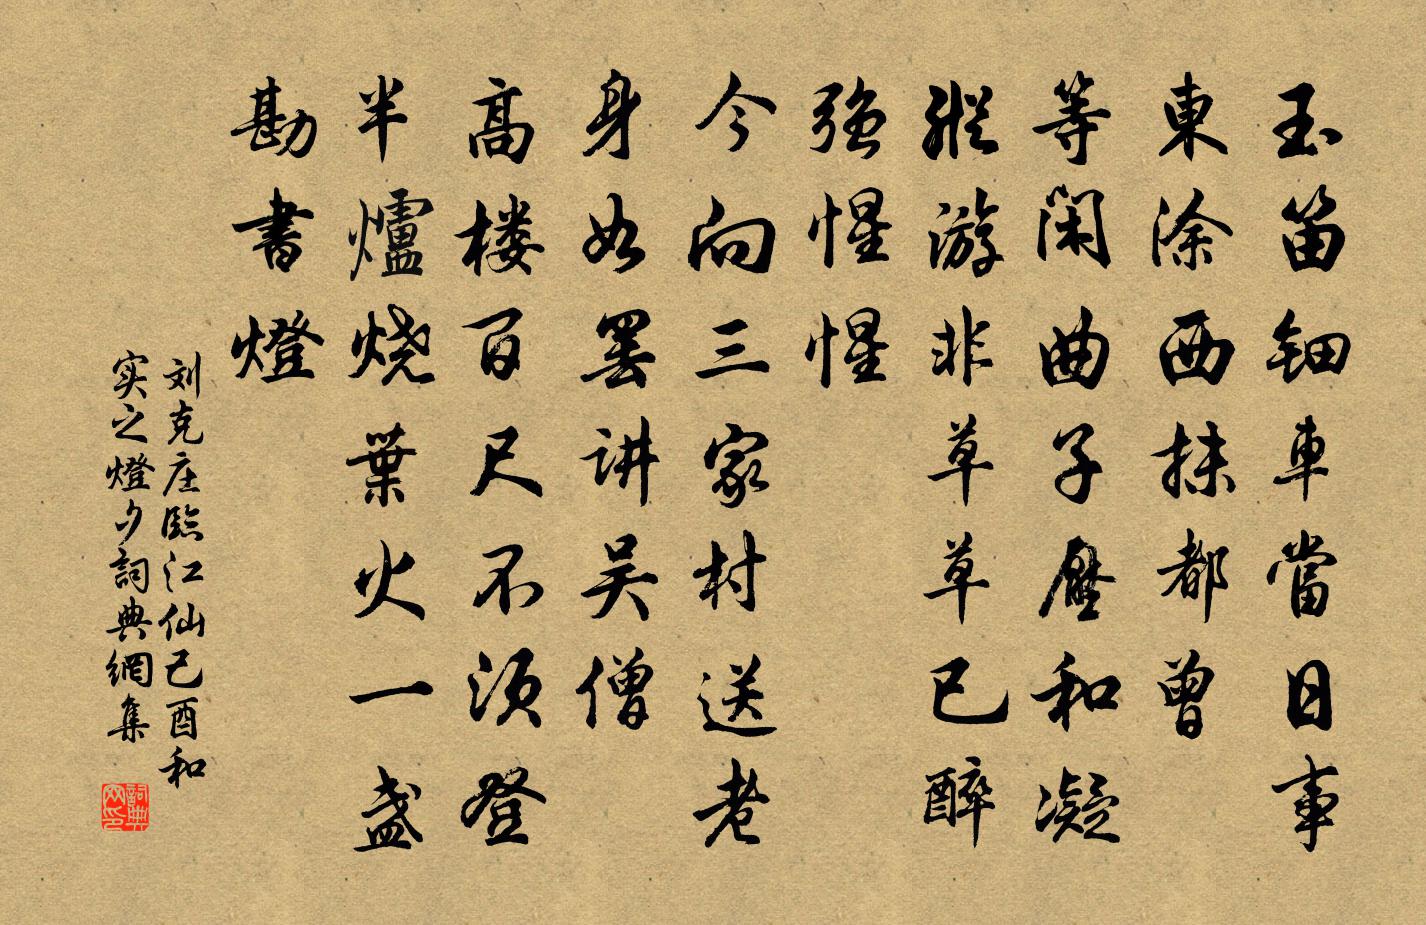 玉笛鈿車當日事
東涂西抹都曾
等閑曲子壓和凝
縱游非草草已醉
强惺惺
今向三家村送老
身如罢讲吴僧
高楼百尺不须登
半爐烧葉火一盏
勘書燈
刘克庄臨江仙己酉和
实之燈夕詞典網集
詞典网印